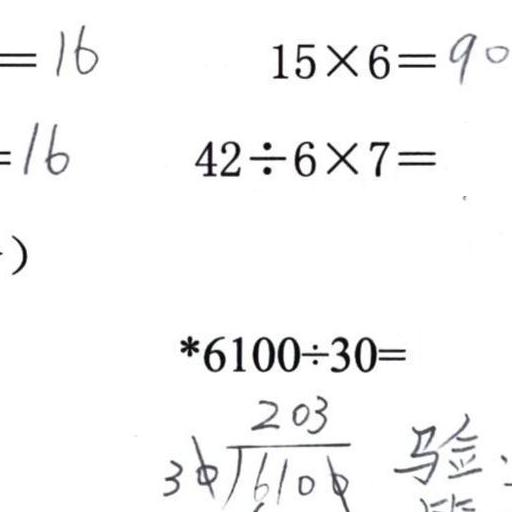 =16 15×6=90
=16 42÷6×7=
)
*6100÷30=
203
30)6100 验: